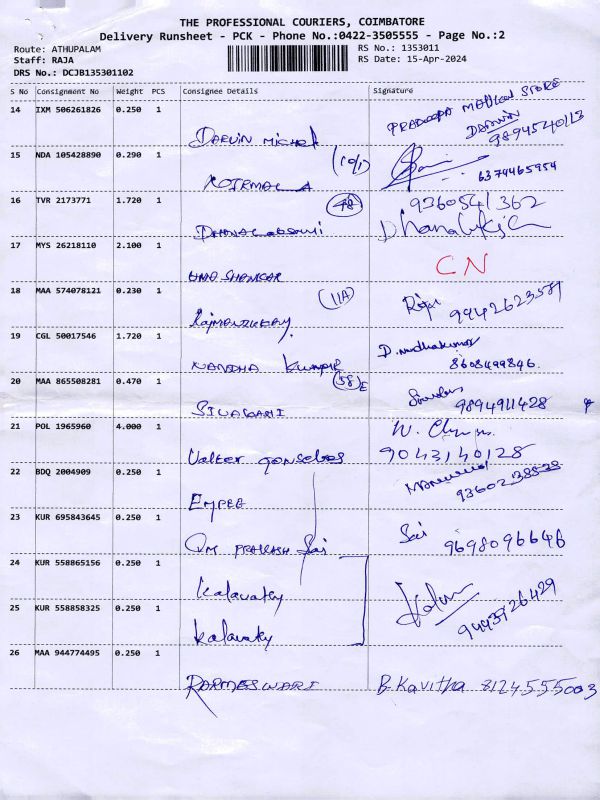 THE PROFESSIONAL COURIERS, COIMBATORE
Delivery Runsheet - PCK - Phone No.:0422-3505555 - Page No.:2
Route: ATHUPALAM
RS No.: 1353011
Staff: RAJA
RS Date: 15-Apr-2024
DRS No.: DCJB135301102
S No Consignment No Weight PCS Consignee Details Signature
14 IXM 506261826 0.250 1
PRADEEPA Medical STORE
DARWIN
DARVIN MICHEL 9894540113
15 NDA 105428890 0.290 1
(10/1)
NOIRMAL A 6374465954
16 TVR 2173771 1.720 1
48 9360541362
DHANALAKSHMI Dhanalakshmi
17 MYS 26218110 2.100 1
UMA SHANKAR CN
18 MAA 574078121 0.230 1
(11A)
9942623589
19 CGL 50017546 1.720 1
D. Nandhakumar
NANDHA KUMAR 8608499846.
20 MAA 865508281 0.470 1
58 E
SIVAGAMI 9894911428
21 POL 1965960 4.000 1
Valter gonselos 9043140128
22 BDQ 2004909 0.250 1
EMPEE
23 KUR 695843645 0.250 1
OM PRAKASH Sai Sai 9698096646
24 KUR 558865156 0.250 1
Kalavathy
25 KUR 558858325 0.250 1
Kalavathy 9443726429
26 MAA 944774495 0.250 1
PARMESWARI B. Kavitha 8124555003